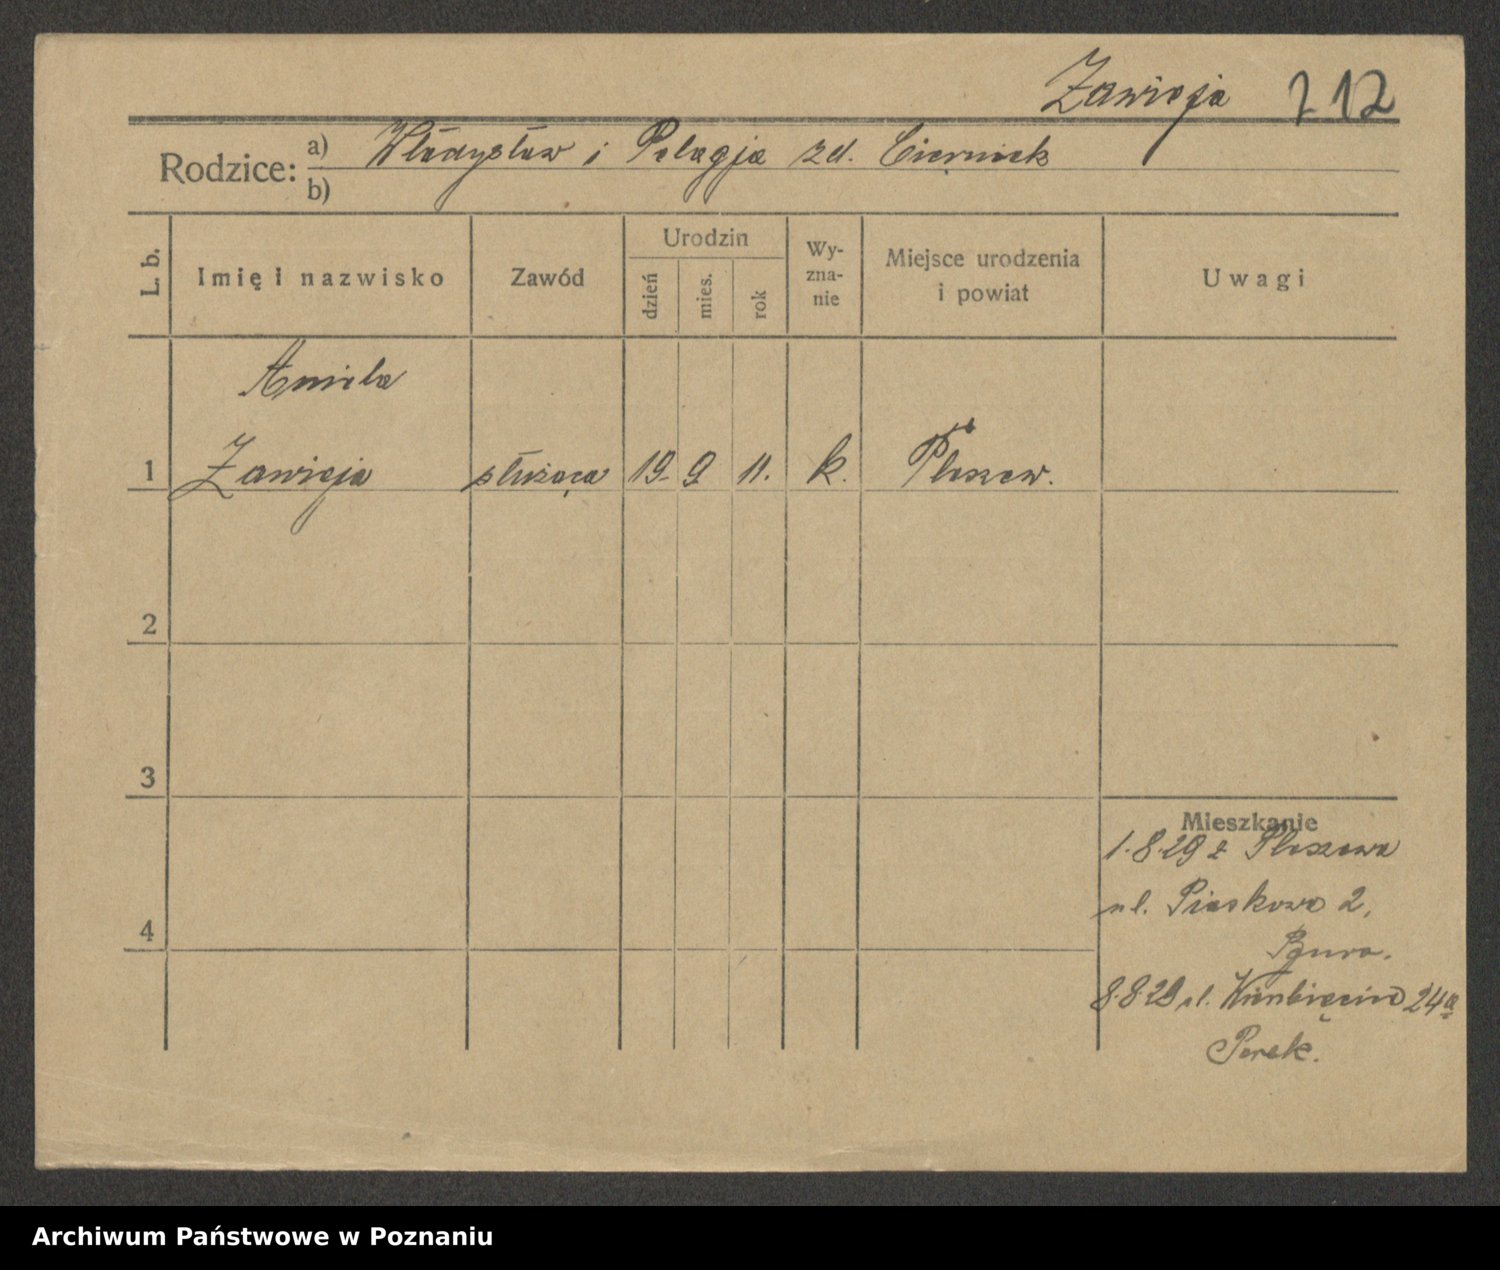 Zawieja 212
Rodzice: a) Władysław i Pelagja zd.
b)
L. b. Imię i nazwisko Zawód Urodzin dzień mies. rok Wy-zna-nie Miejsce urodzenia i powiat Uwagi
Aniela
1 Zawieja służąca 19 9 11. k. Pleszew.
2
3
Mieszkanie
1.8.29 z Pleszewa
ul. Piaskowa 2,
4
8.8.29 ul. 24a
Archiwum Państwowe w Poznaniu